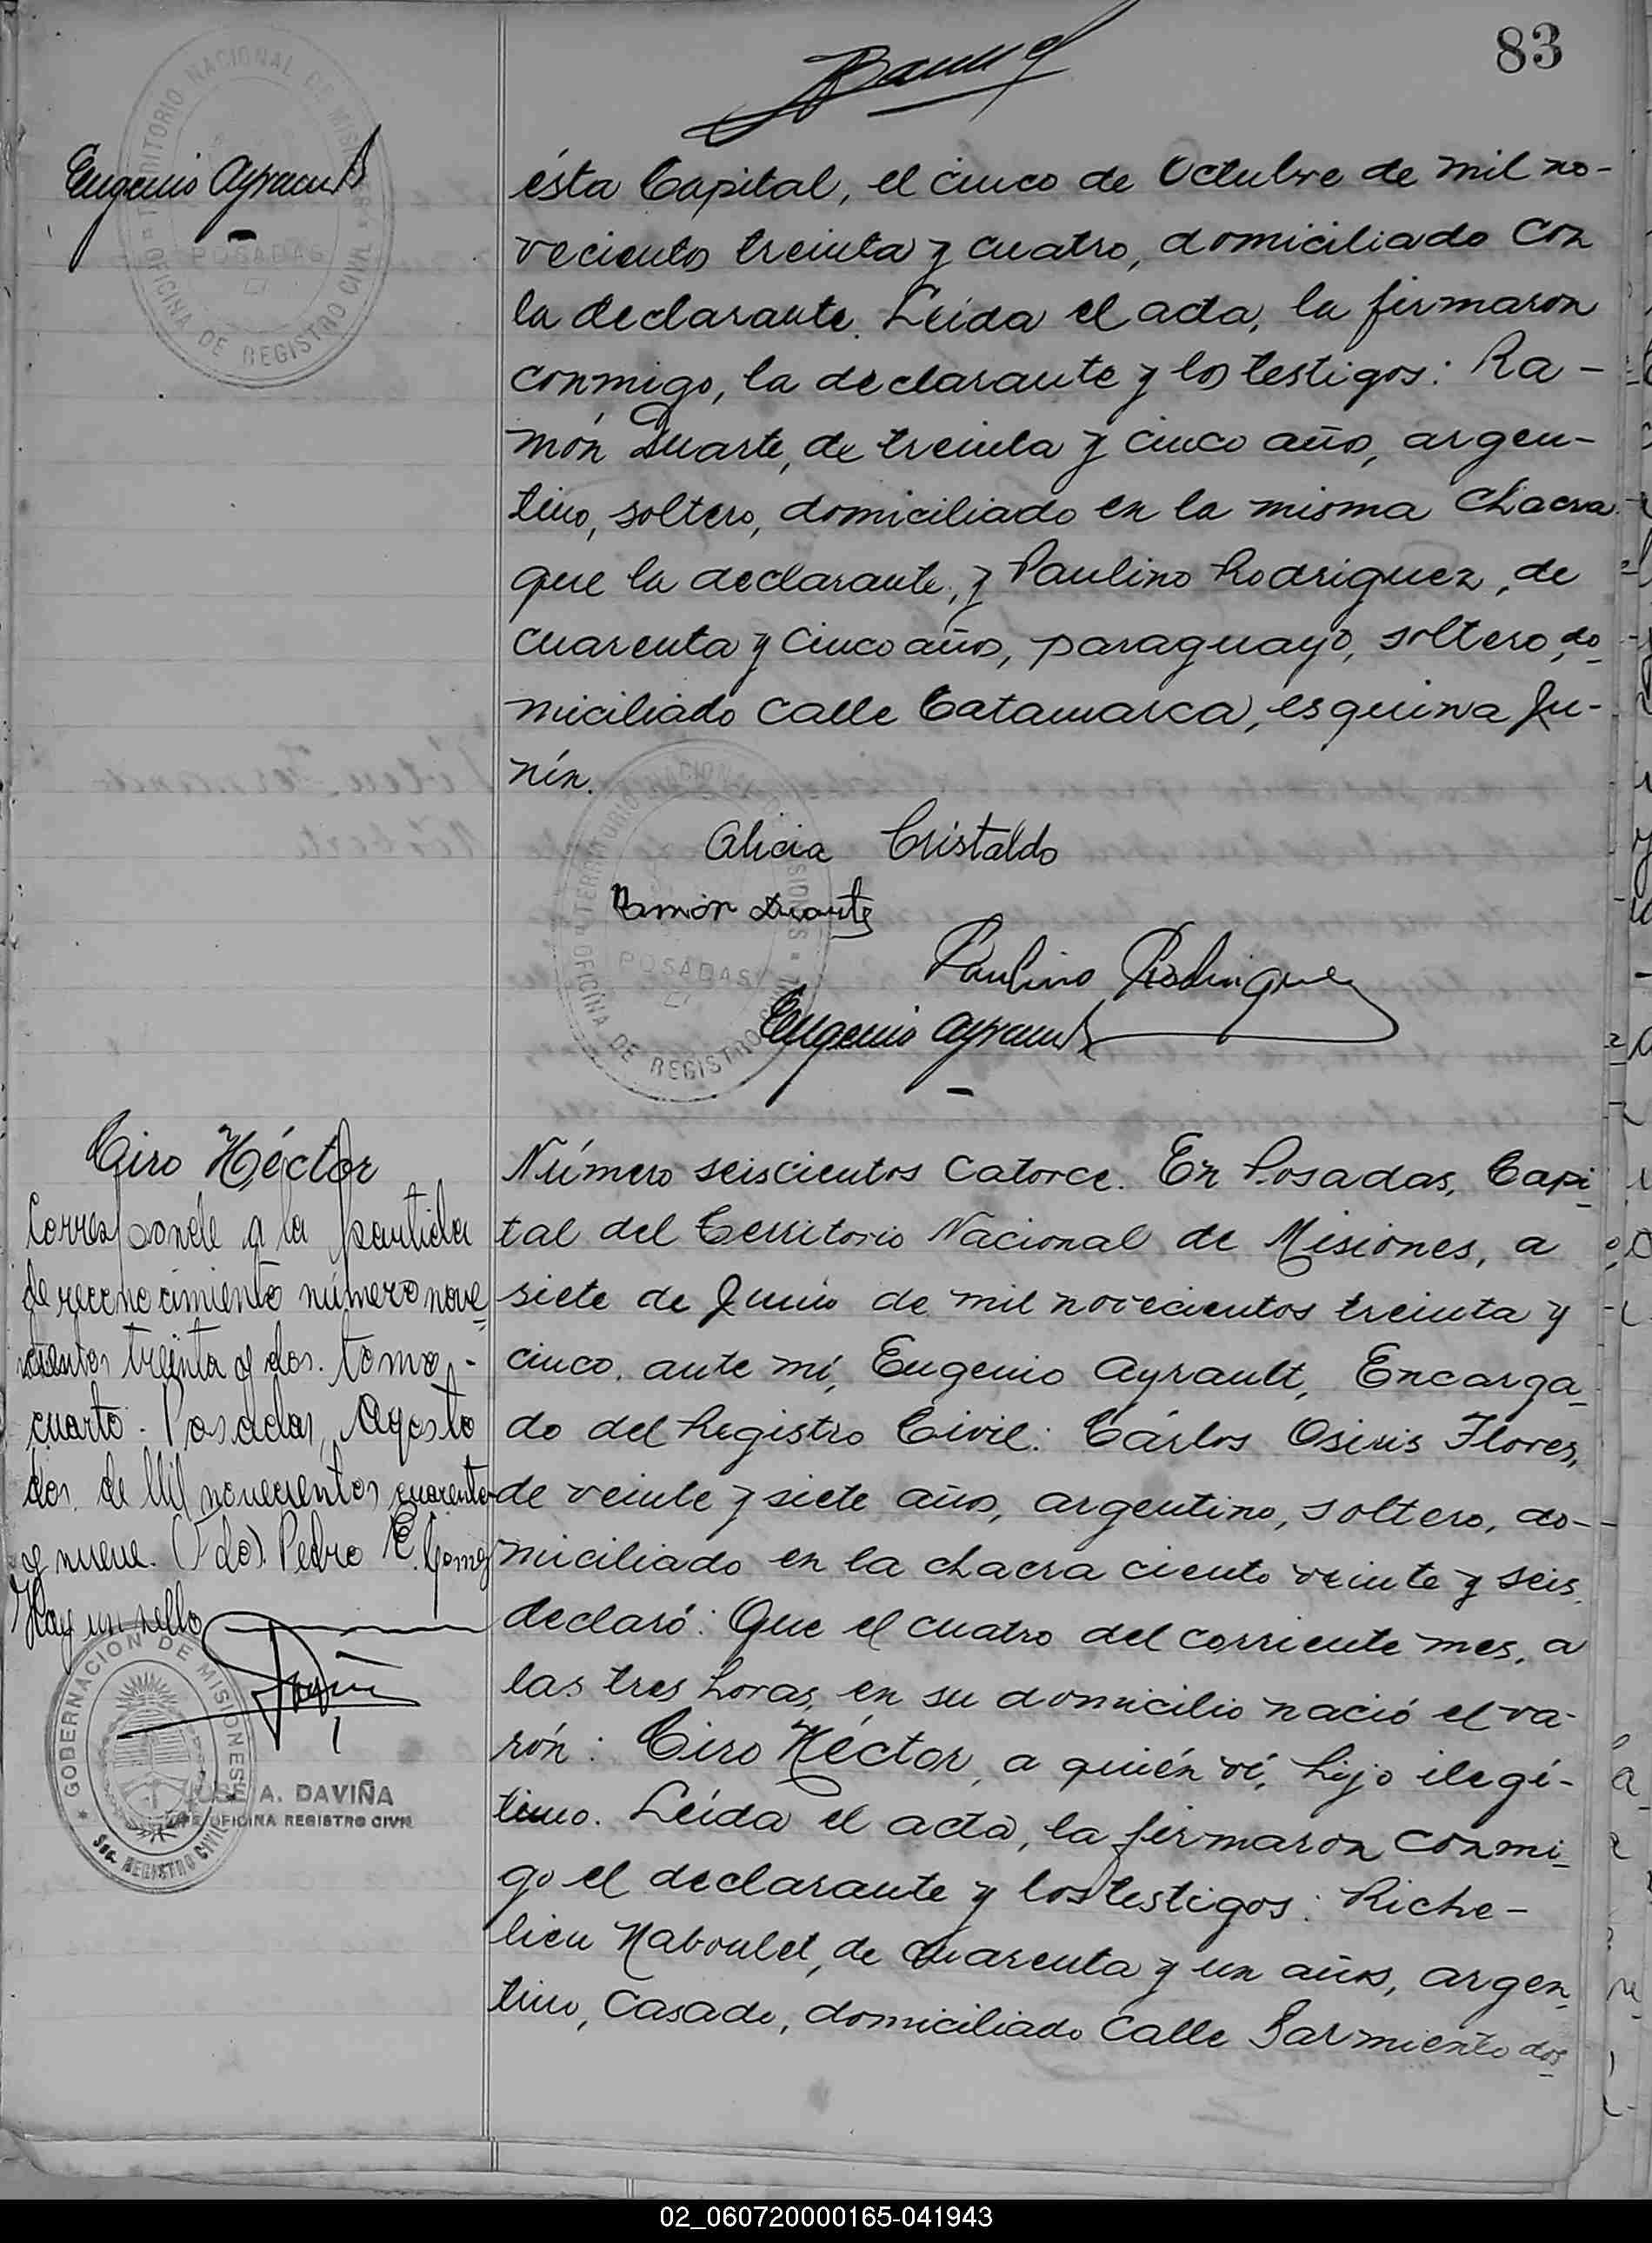 83
TERRITORIO NACIONAL DE MISIONES
POSADAS
OFICINA DE REGISTRO CIVIL
Eugenio Ayrault
ésta Capital, el cinco de Octubre de mil no-
vecientos treinta y cuatro, domiciliado con
la declarante. Leída el acta, la firmaron
conmigo, la declarante y los testigos: Ra-
món Duarte, de treinta y cinco años, argen-
tino, soltero, domiciliado en la misma chacra
que la declarante, y Paulino Rodriguez, de
cuarenta y cinco años, paraguayo, soltero, do-
miciliado calle Catamarca, esquina Ju-
nín.
TERRITORIO NACIONAL DE MISIONES
POSADAS
OFICINA DE REGISTRO CIVIL
Alicia Cristaldo
Ramón Duarte
Paulino Rodriguez
Eugenio Ayrault
Ciro Héctor
Corresponde a la partida
de reconocimiento número nove-
cientos treinta y dos. tomo -
cuarto. Posadas, Agosto
dos de Mil novecientos cuarenta
y nueve. (Fdo). Pedro E. Gomez
Hay un sello
GOBERNACION DE MISIONES
Sec. REGISTRO CIVIL
JOSE A. DAVIÑA
JEFE OFICINA REGISTRO CIVIL
Número seiscientos catorce. En Posadas, Capi-
tal del Territorio Nacional de Misiones, a
siete de Junio de mil novecientos treinta y
cinco, ante mí, Eugenio Ayrault, Encarga-
do del Registro Civil: Cárlos Osiris Flores,
de veinte y siete años, argentino, soltero, do-
miciliado en la chacra ciento veinte y seis,
declaró: Que el cuatro del corriente mes, a
las tres horas, en su domicilio nació el va-
rón: Ciro Héctor, a quién ví, hijo ilegí-
timo. Leída el acta, la firmaron conmi-
go el declarante y los testigos: Riche-
lieu Naboulet, de cuarenta y un años, argen-
tino, casado, domiciliado calle Sarmiento dos
02_060720000165-041943